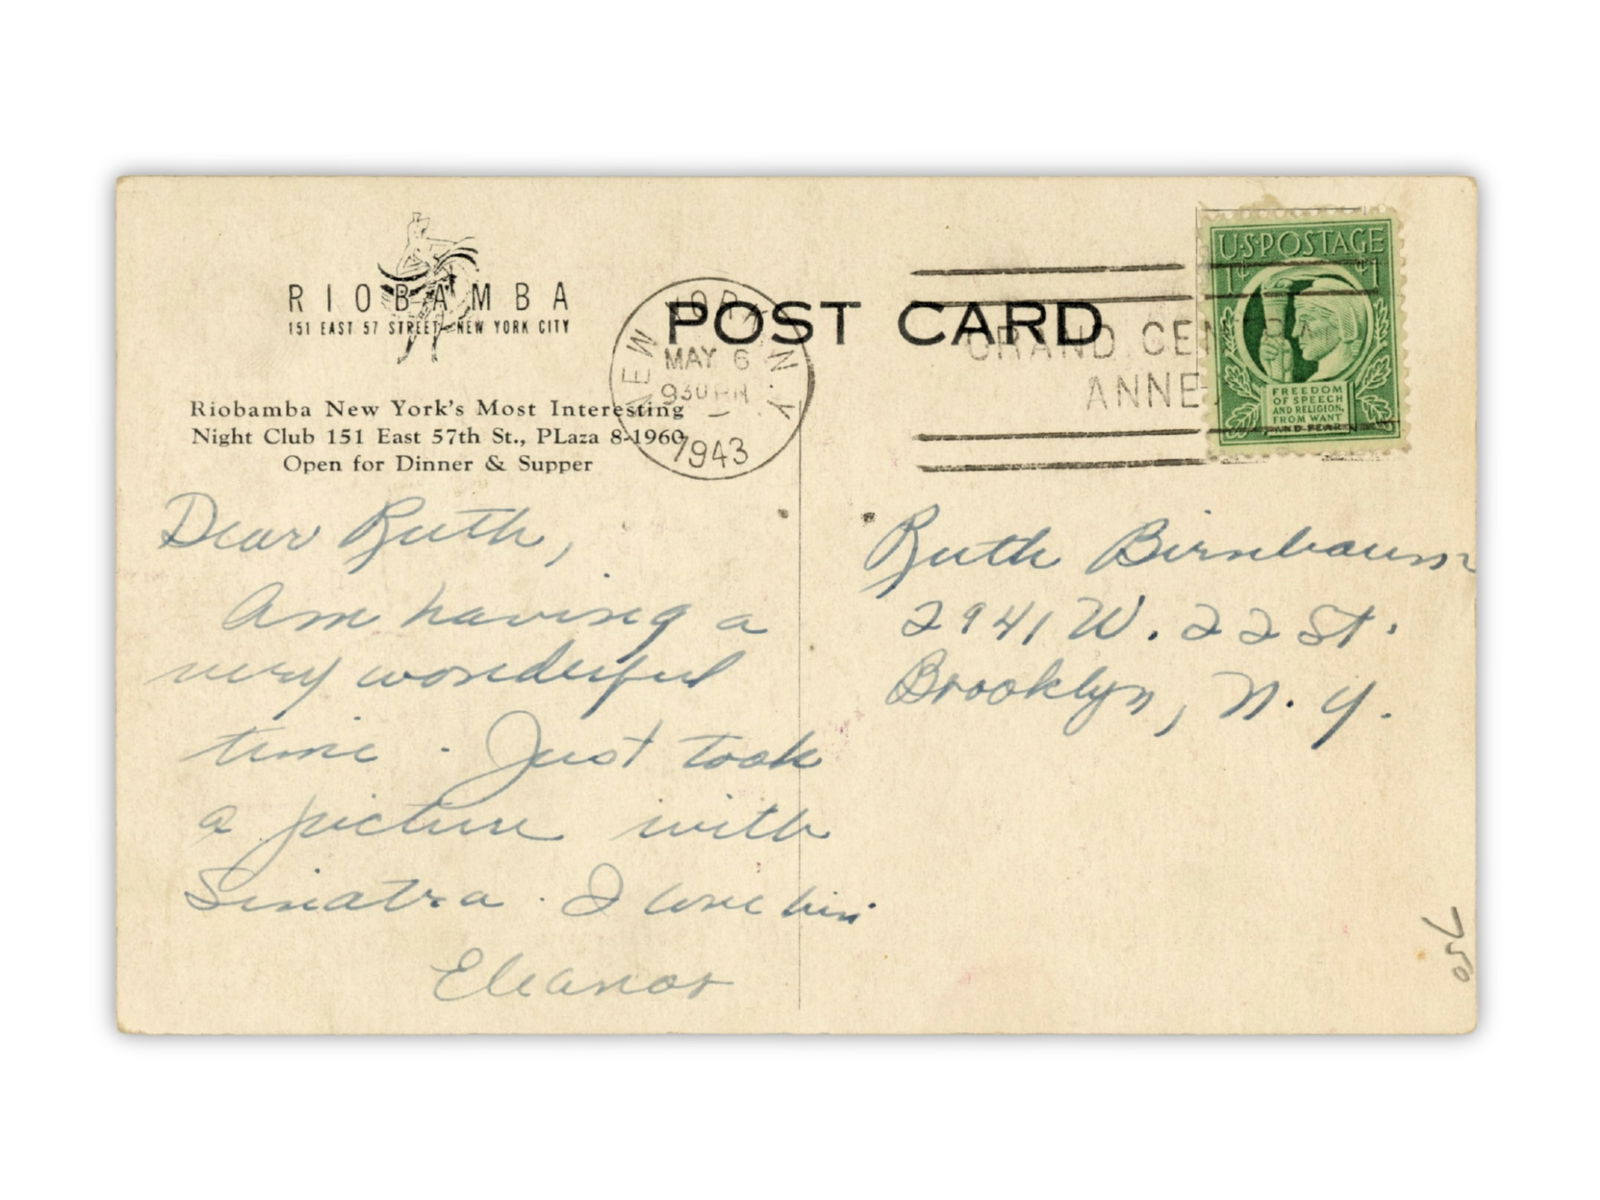 RIOBAMBA
151 EAST 57 STREET-NEW YORK CITY
Riobamba New York's Most Interesting
Night Club 151 East 57th St., PLaza 8-1960
Open for Dinner & Supper
POST CARD
NEW YORK, N.Y.
MAY 6
930 PM
1943
GRAND CEN
ANNE
U.S. POSTAGE
1¢ ¢1
FREEDOM
OF SPEECH
AND RELIGION,
FROM WANT
AND FEAR
Dear Ruth,
Am having a
very wonderful
time. Just took
a picture with
Sinatra. I love him.
Eleanor
Ruth Birnbaum
2941 W. 22 St.
Brooklyn, N.Y.
750